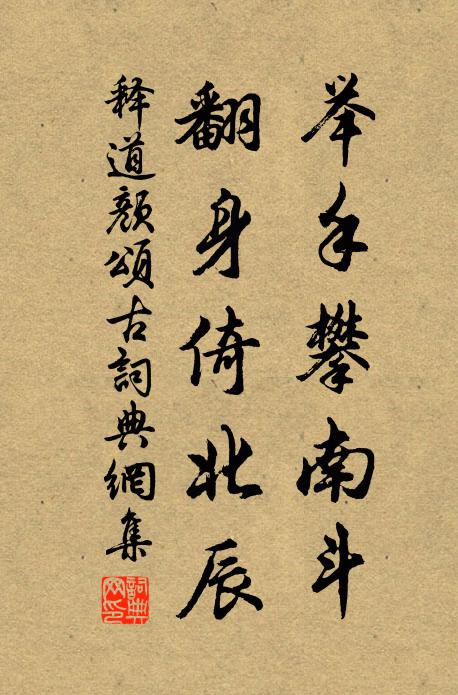 举手攀南斗
翻身倚北辰
释道颜頌古詞典網集
詞典网印